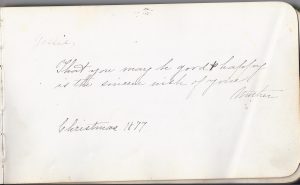 That you may be good & happy
is the sincere wish of your
Christmas 1877